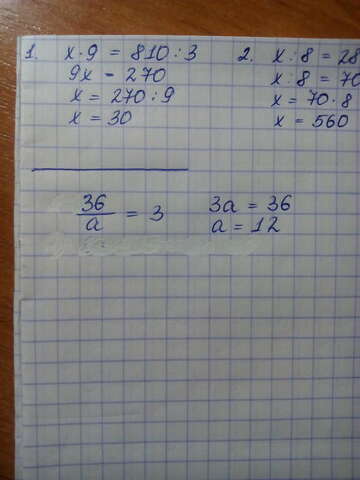 1. x·9 = 810:3
9x - 270
x = 270:9
x = 30
2. x:8 = 28
x:8 = 70
x = 70·8
x = 560
36/a = 3
3a = 36
a = 12